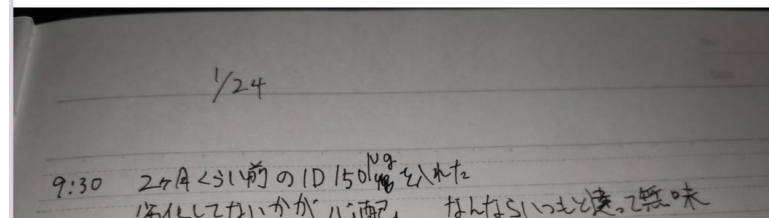 1/24
9:30 2ヶ月くらい前の1D 150μgを入れた
劣化してないかが心配。なんならいつもと違って無味